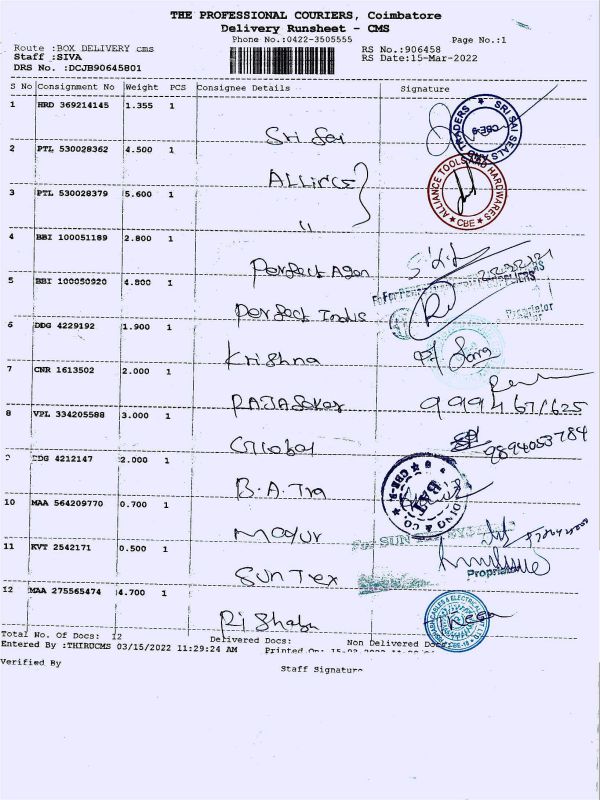 THE PROFESSIONAL COURIERS, Coimbatore
Delivery Runsheet - CMS
Phone No.:0422-3505555
Page No.:1
Route :BOX DELIVERY cms
RS No.:906458
Staff :SIVA
RS Date:15-Mar-2022
DRS No. :DCJB90645801
S No Consignment No Weight PCS Consignee Details Signature
1 HRD 369214145 1.355 1
Sri Sai
SRI SAI SEALS TRADERS CBE-9
2 PTL 530028362 4.500 1
Allince
ALLIANCE TOOLS AND HARDWARES CBE
3 PTL 530028379 5.600 1
"
4 BBI 100051189 2.800 1
Perfect Agen
5 BBI 100050920 4.800 1
Perfect Indus
Proprietor
6 DDG 4229192 1.900 1
Krishna
7 CNR 1613502 2.000 1
RAJASeker
9994671625
8 VPL 334205588 3.000 1
Global
9894053784
9 DDG 4212147 2.000 1
B.A.Tra
BAT
DING & CO
10 MAA 564209770 0.700 1
Mayur
11 KVT 2542171 0.500 1
Sun Tex
For SUN
Proprietor
12 MAA 275565474 4.700 1
Rishabh
CABLES & ELECTRICAL
Total No. Of Docs: 12 Delivered Docs: Non Delivered Docs
Entered By :THIRUCMS 03/15/2022 11:29:24 AM Printed On:
Verified By
Staff Signature